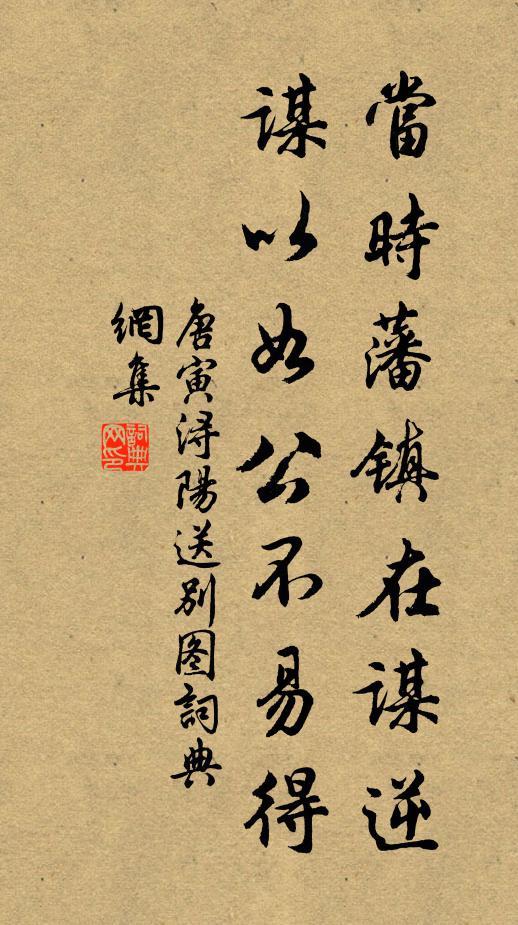 當時藩鎮在謀逆
謀以如公不易得
唐寅潯陽送別圖詞典
網集
詞典
网印